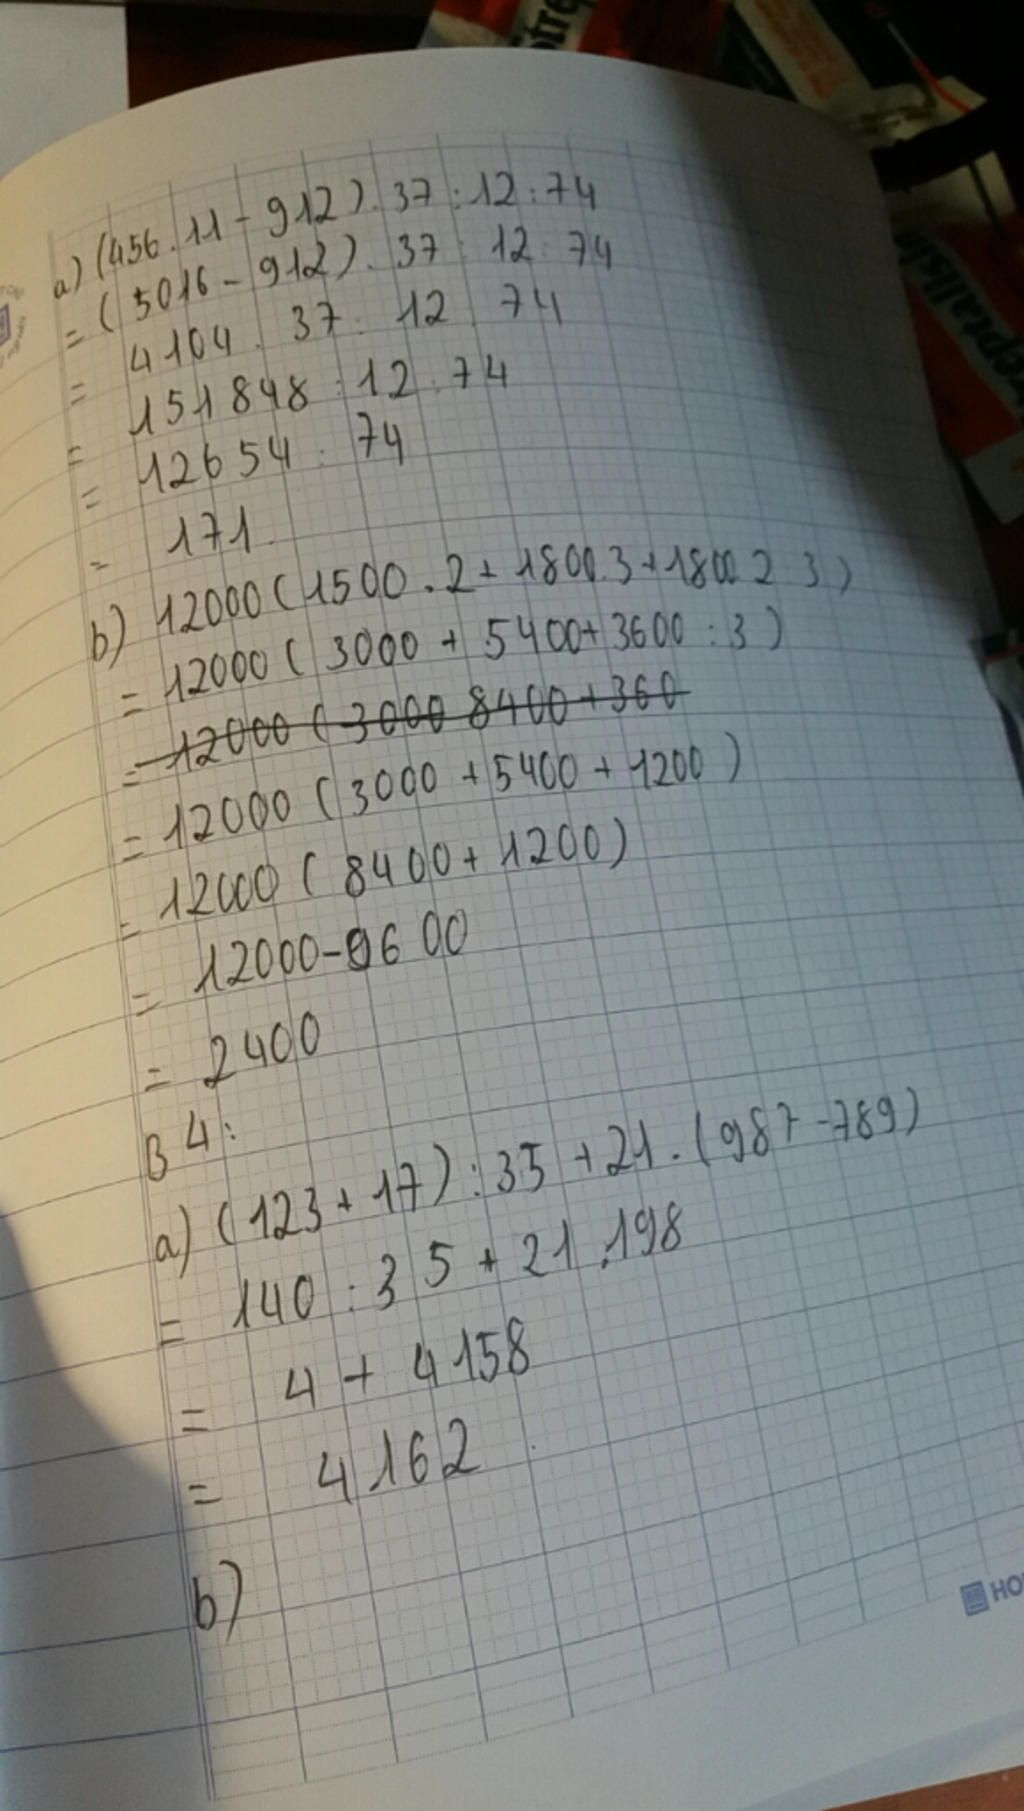 a) (456.11-912).37:12:74
= (5016-912).37:12:74
= 4104.37:12:74
= 151848:12:74
= 12654:74
= 171
b) 12000(1500.2+1800.3+1800.2 3)
= 12000(3000+5400+3600:3)
= 12000(3000 8400+360
= 12000(3000+5400+1200)
= 12000(8400+1200)
= 12000-9600
= 2400
B4:
a) (123+17):35+21.(987-789)
= 140:35+21.198
= 4+4158
= 4162
b)
HO